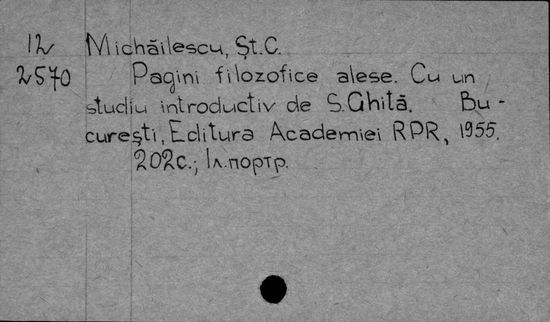 12 Michăilescu, Șt.C.
2570 Pagini filozofice alese. Cu un
studiu introductiv de S.Ghită. Bu-
curești, Editura Academiei RPR, 1955.
202с.; Іл.портр.